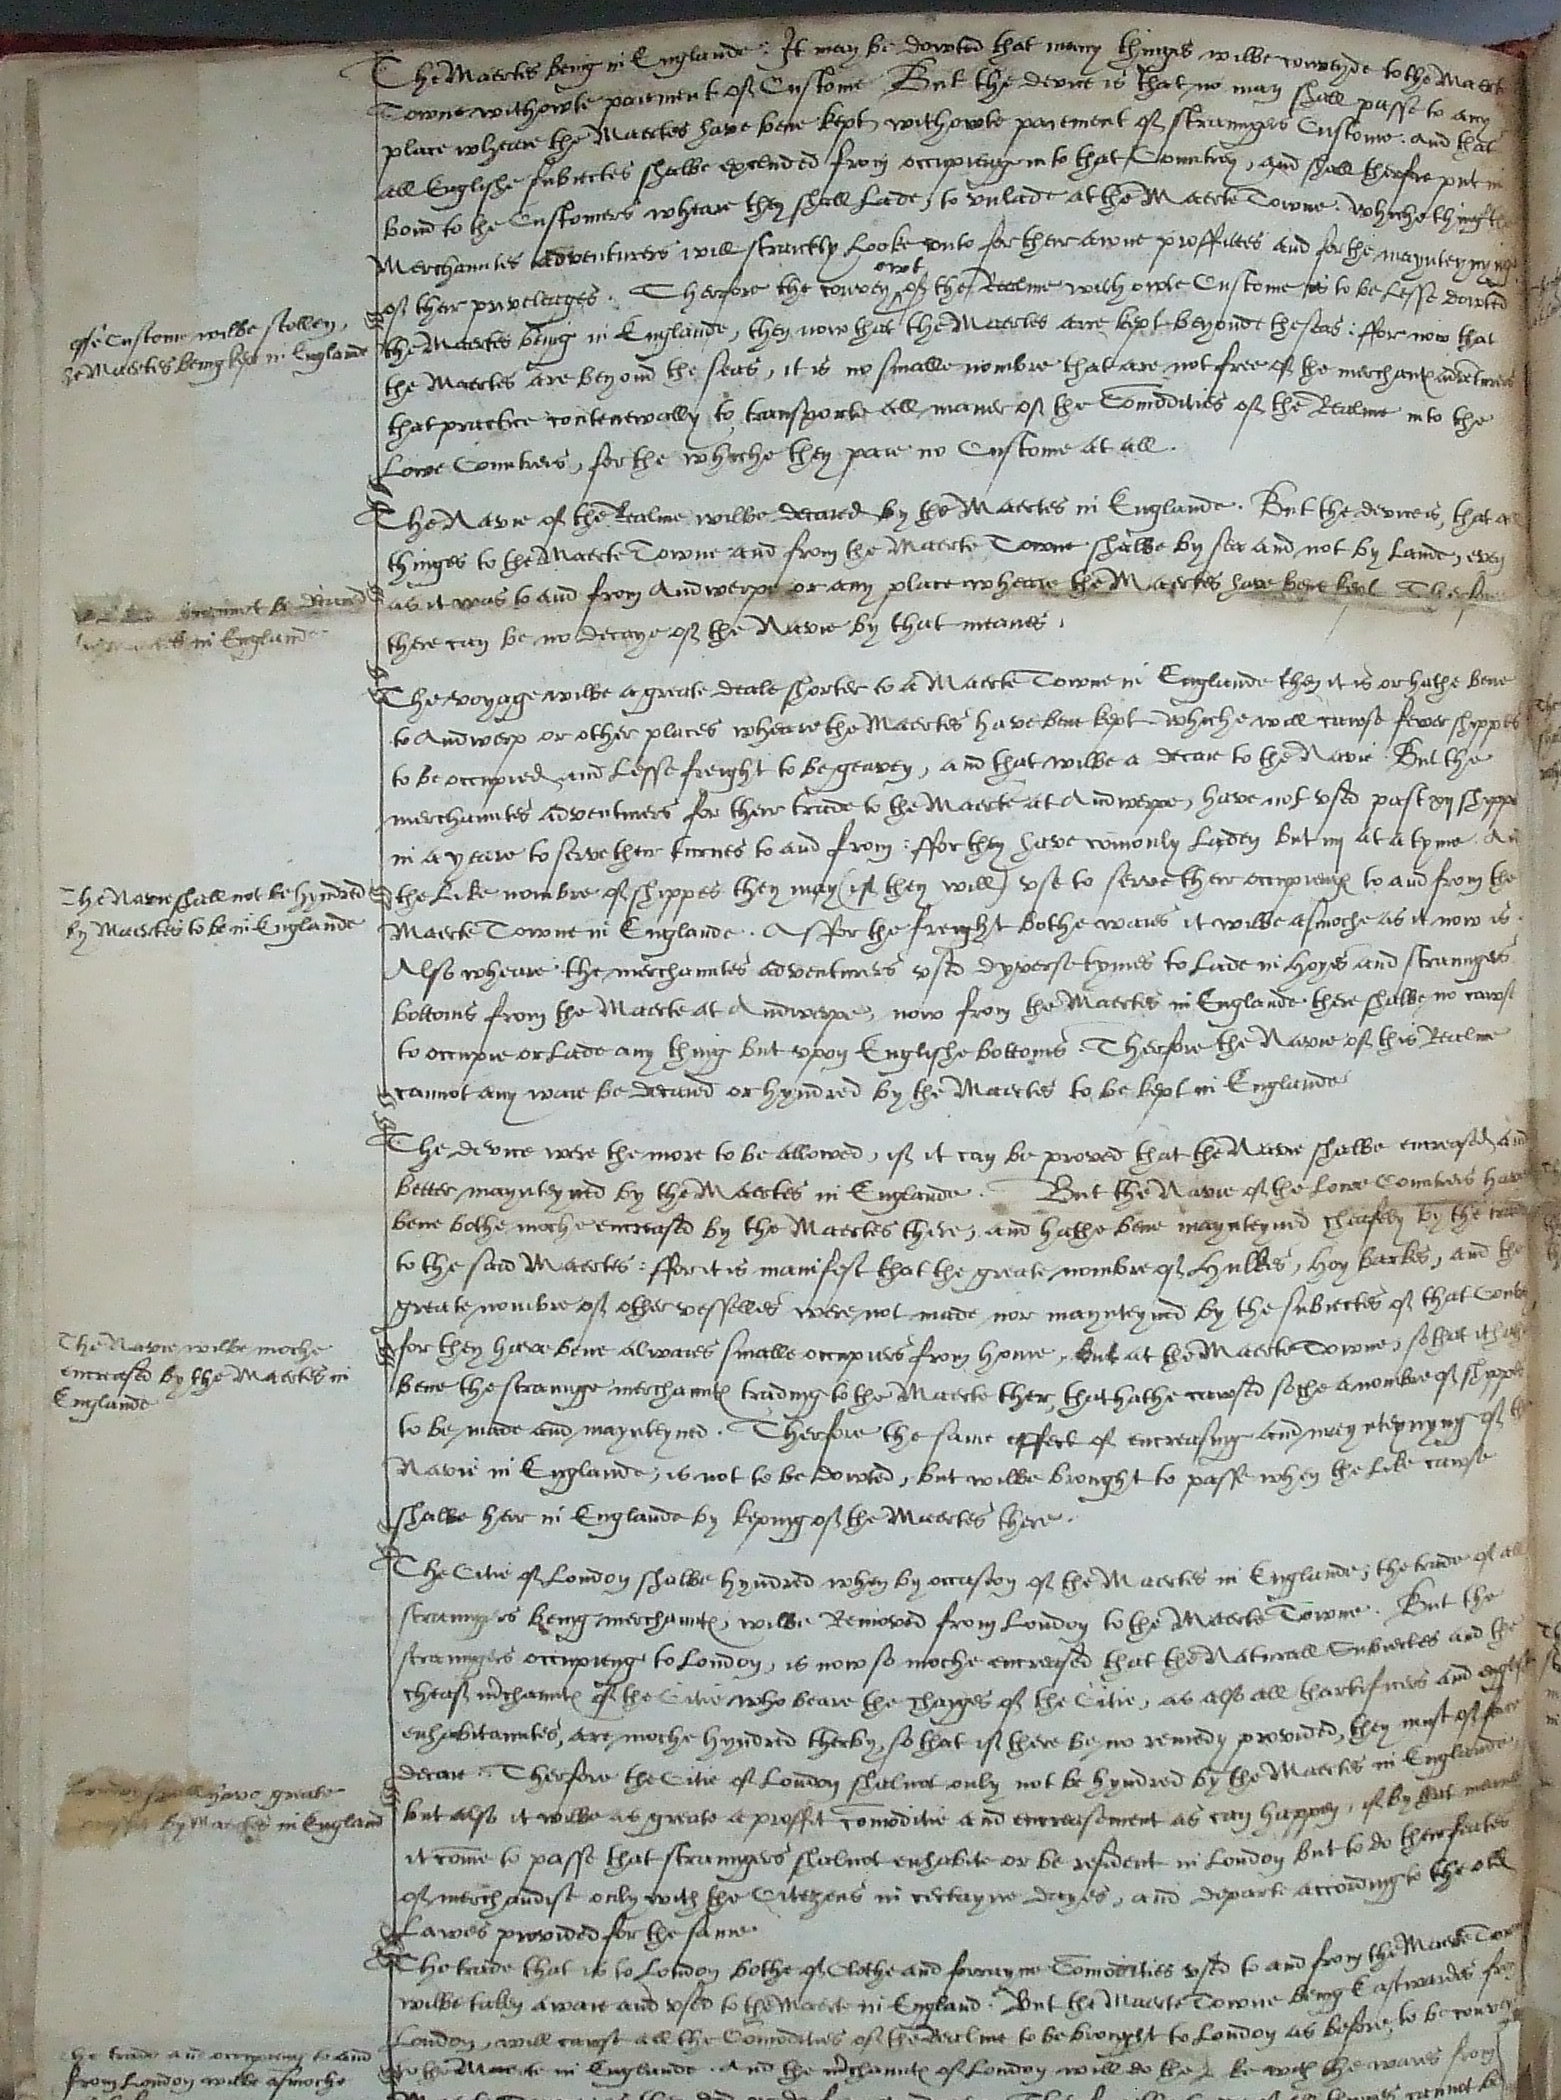 The Maertes being in Englande: It may be dowted that many thinges wilbe conveyde to the Maerte
Towne withowte paiement of Custome But the device is that no man shall passe to any
place wheare the Maertes have bene kept, withowte paiement of straungers Custome. and that
all Englishe subiectes shalbe excluded from occupienge into that Countrey, and shall therfore put in
bond to the Customers wheare they shall Lade, to unlade at the Maerte Towne. whiche thing the
Merchauntes adventurers will straictly Looke unto for their awne proffittes and for the maynteyning
of their priveleges. Therfore the convey owt of the Realme withowte Custome is to be Lesse dowted
the Maertes being in Englande, then now that the Maertes are kept beyonde the seas: ffor now that
the Maertes are beyond the seas, it is no smalle nombre that are not free of the merchantes adventurers
that practice contenewally to transporte all maner of the Comodities of the Realme into the
Lowe Countreis, for the whiche they paie no Custome at all.
Custome wilbe stollen,
the Maertes being kept in Englande
The Navie of the Realme wilbe decaied by the Maertes in Englande. But the device is, that all
thinges to the Maerte Towne and from the Maerte Towne shalbe by sea and not by Lande, even
as it was to and from Andwerpe or any place wheare the Maertes have bene kept Therfore
there can be no decaye of the Navie by that meanes.
cannot be decaied
in Englande
The voyage wilbe a greate deale shorter to a Maerte Towne in Englande then it is or hathe bene
to Andwerp or other places wheare the Maertes have bene kept whiche will cawse fewer shippes
to be occupied and Lesse freight to be geaven, and that wilbe a decaie to the Navie But the
merchauntes adventurers for their trade to the Maerte at Andwerpe, have not used past xij shippes
in a yeare to serve their turnes to and from: ffor they have comonly Laden but iiij at a tyme. And
the Like nombre of shippes they may (if they will) use to serve their occupienge to and from the
Maerte Towne in Englande. As for the freight bothe waies it wilbe asmoche as it now is.
Also wheare the merchauntes adventurers used dyverse tymes to Lade in Hoyes and straungers
bottoms from the Maerte at Andwerpe, now from the Maertes in Englande there shalbe no cawse
to occupie or Lade any thing but upon Englishe bottoms. Therfore the Navie of this Realme
cannot any waie be decaied or hyndred by the Maertes to be kept in Englande
The Navie shall not be hyndred
by Maertes to be in Englande
The device were the more to be allowed, if it can be proved that the Navie shalbe encreased and
better maynteyned by the Maertes in Englande. But the Navie of the Lowe Countreis have
bene bothe moche encreased by the Maertes there, and hathe bene maynteyned cheafely by the trade
to the said Maertes: ffor it is manifest that the greate nombre of Hulkes, Hoy barkes, and the
greate nombre of other vesselles were not made nor maynteyned by the subiectes of that Contrey
for they have bene alwaies smalle occupiers from home, but at the Maerte Towne, so that it hathe
bene the straunge merchauntes trading to the Maerte ther, that hathe cawsed suche a nombre of shippes
to be made and maynteyned. Therfore the same effect of encreasing and maynteynyng of the
Navie in Englande, is not to be dowted, but wilbe brought to passe when the Like cawse
shalbe heer in Englande by keping of the Maertes there.
The Navie wilbe moche
encreased by the Maertes in
Englande
The Citie of London shalbe hyndred when by occasion of the Maertes in Englande, the trade of all
straungers being merchauntes, wilbe Removed from London to the Maerte Towne. But the
straungers occupieng to London, is now so moche encreased that the Naturall Subiectes and the
cheaf merchauntes of the Citie who beare the charges of the Citie, as also all thartificers and english
enhabitauntes, are moche hyndred therby, so that if there be no remedy provided, they must of force
decaie. Therfore the Citie of London shal not only not be hyndred by the Maertes in Englande,
but also it wilbe as greate a proffit comoditie and encreasement as can happen, if by that meanes
it come to passe that straungers shal not enhabite or be resident in London but to do their feates
of merchandise only with the Citezens in certayne dayes, and departe according to the old
Lawes provided for the same.
London shall have greate
by Maertes in England
The trade that is to London bothe of Clothe and forrayne Comodities used to and from the Maerte Towne
wilbe taken awaie and used to the Maerte in England. But the Maerte Towne being Eastwardes from
London, will cawse all the Comodities of the Realme to be brought to London as before, to be convey
to the Maerte in Englande. And the merchauntes of London will do the like with the wares from
the trade and occupieng to and
from London wilbe asmoche